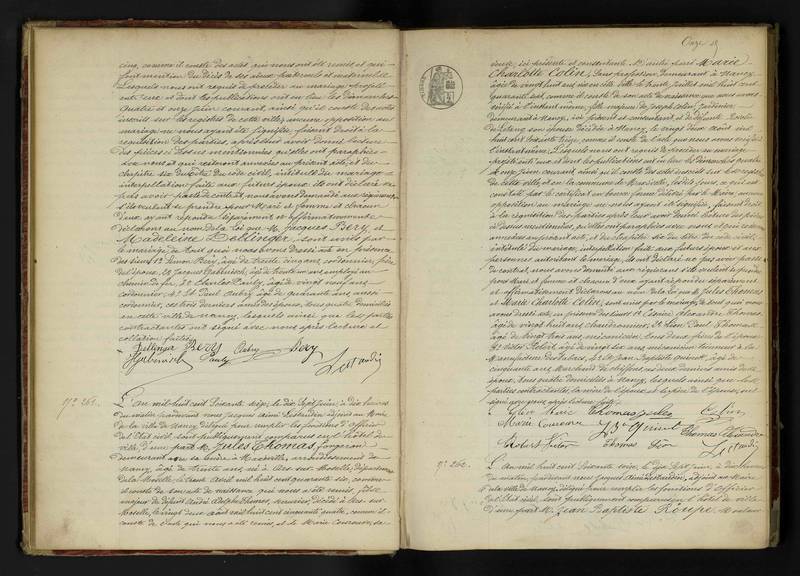 cinq, comme il conste des actes qui nous ont été remis et qui
font mention du décès de ses aïeux paternels et maternels
Lesquels nous ont requis de procéder au mariage projeté
entre eux et dont les publications ont eu lieu les dimanches
quatre et onze juin courant, ainsi qu'il conste des actes
inscrits sur les registres de cette ville; aucune opposition au
mariage ne nous ayant été signifiée, faisant droit à la
réquisition des parties, après leur avoir donné lecture
des pièces ci dessus mentionnées qu'elles ont paraphées
avec nous et qui resteront annexées au présent acte, et du
chapitre six du titre du code civil, intitulé du mariage
interpellation faite aux futurs époux ils ont déclaré ne
pas avoir fait de contrat, nous avons demandé aux requérants
s'ils veulent se prendre pour Mari et femme et chacun
d'eux ayant répondu séparément et affirmativement
déclarons au nom de la loi que M. Jacques Bery, et
Madeleine Dellinger, sont unis par
le mariage, de tout quoi nous avons dressé acte en présence
des sieurs 1° Simon Bery, âgé de trente cinq ans, cordonnier, frère
de l'époux, 2° Jacques âgé de trente un ans employé au
chemin de fer, 3° Charles Pauly, âgé de vingt neuf ans,
cordonnier, 4° et Paul Aubry âgé de quarante ans, aussi
cordonnier, ces trois derniers amis des époux, tous quatre domiciliés
en cette ville de Nancy, lesquels ainsi que les parties
contractantes ont signé avec nous après lecture et
collation faites
Dellinger Bery
Pauly Aubry Bery
Lestaudin
N° 261.
L'an mil huit cent soixante seize, le dix sept juin, à dix heures
du matin, pardevant nous Jacques Aimé Lestaudin adjoint au Maire
de la ville de Nancy, délégué pour remplir les fonctions d'officier
de l'Etat civil, sont publiquement comparus en l'hôtel de
ville, d'une part M. Jules Thomas, forgeron
demeurant avec sa mère à Maxéville, arrondissement de
Nancy, âgé de trente ans né à Ars sur Moselle, département
de la Moselle, le trente Avril mil huit cent quarante six, comme
il conste de son acte de naissance qui nous a été remis, fils
majeur de défunt André Alphe Thomas, menuisier, décédé à Ars sur
Moselle, le vingt deux Août mil huit cent cinquante quatre, comme il
conste de l'acte qui nous a été remis, et de Marie Couronne, sa
Onze
veuve, ici présente et consentante. D'autre part Marie
Charlotte Colin, sans profession, demeurant à Nancy,
âgée de vingt huit ans, née en cette ville le trente juillet mil huit cent
quarante sept, comme il conste de son acte de naissance que nous avons
vérifié à l'instant même, fille majeure de Joseph Colin, jardinier,
demeurant à Nancy, ici présent et consentant et de défunte
son épouse décédée à Nancy, le vingt deux Août mil
huit cent soixante treize, comme il conste de l'acte que nous avons vérifié
à l'instant même. Lesquels nous ont requis de procéder au mariage
projeté entr'eux et dont les publications ont eu lieu les dimanches quatre
et onze juin courant ainsi qu'il conste des actes inscrits sur les registres
de cette ville, et en la commune de Maxéville, les dits jours, ce qui est
constaté par le certificat en bonne forme délivré par le Maire, aucune
opposition au mariage ne nous ayant été signifiée, faisant droit
à la réquisition des parties après leur avoir donné lecture des pièces
ci dessus mentionnées, qu'elles ont paraphées avec nous et qui resteront
annexées au présent acte, et du chapitre six du titre du code civil,
intitulé du mariage, interpellation faite aux futurs époux et aux
personnes autorisant le mariage, ils ont déclaré ne pas avoir fait
de contrat, nous avons demandé aux requérants s'ils veulent se prendre
pour Mari et femme et chacun d'eux ayant répondu séparément
et affirmativement déclarons au nom de la Loi que M. Jules Thomas
et Marie Charlotte Colin, sont unis par le mariage, de tout quoi nous
avons dressé acte en présence des sieurs 1° Césaire Alexandre Thomas,
âgé de vingt huit ans, chaudronnier, 2° Léon Paul Thomas
âgé de vingt trois ans, mécanicien, tous deux frères de l'époux,
3° Victor Robert, âgé de ans, mécanicien à la
Manufacture des Tabacs, 4° et Jean Baptiste Guinot, âgé de
cinquante ans, Marchand de chiffons, ces deux derniers amis des
époux, tous quatre domiciliés à Nancy, lesquels ainsi que les
parties contractantes, la mère de l'époux et le père de l'épouse, ont
signé avec nous après lecture faite
Colin Marie Thomas jules Colin
Marie Couronne J Bte Guinot Thomas Alexandre
Robert Victor Thomas Léon Lestaudin
N° 262.
L'an mil huit cent soixante seize, le dix sept juin, à dix heures
du matin, pardevant nous Jacques Aimé Lestaudin, adjoint au Maire
de la ville de Nancy, délégué pour remplir les fonctions d'officier
de l'Etat civil, sont publiquement comparus en l'hôtel de ville
d'une part M. Jean Baptiste Roupe,